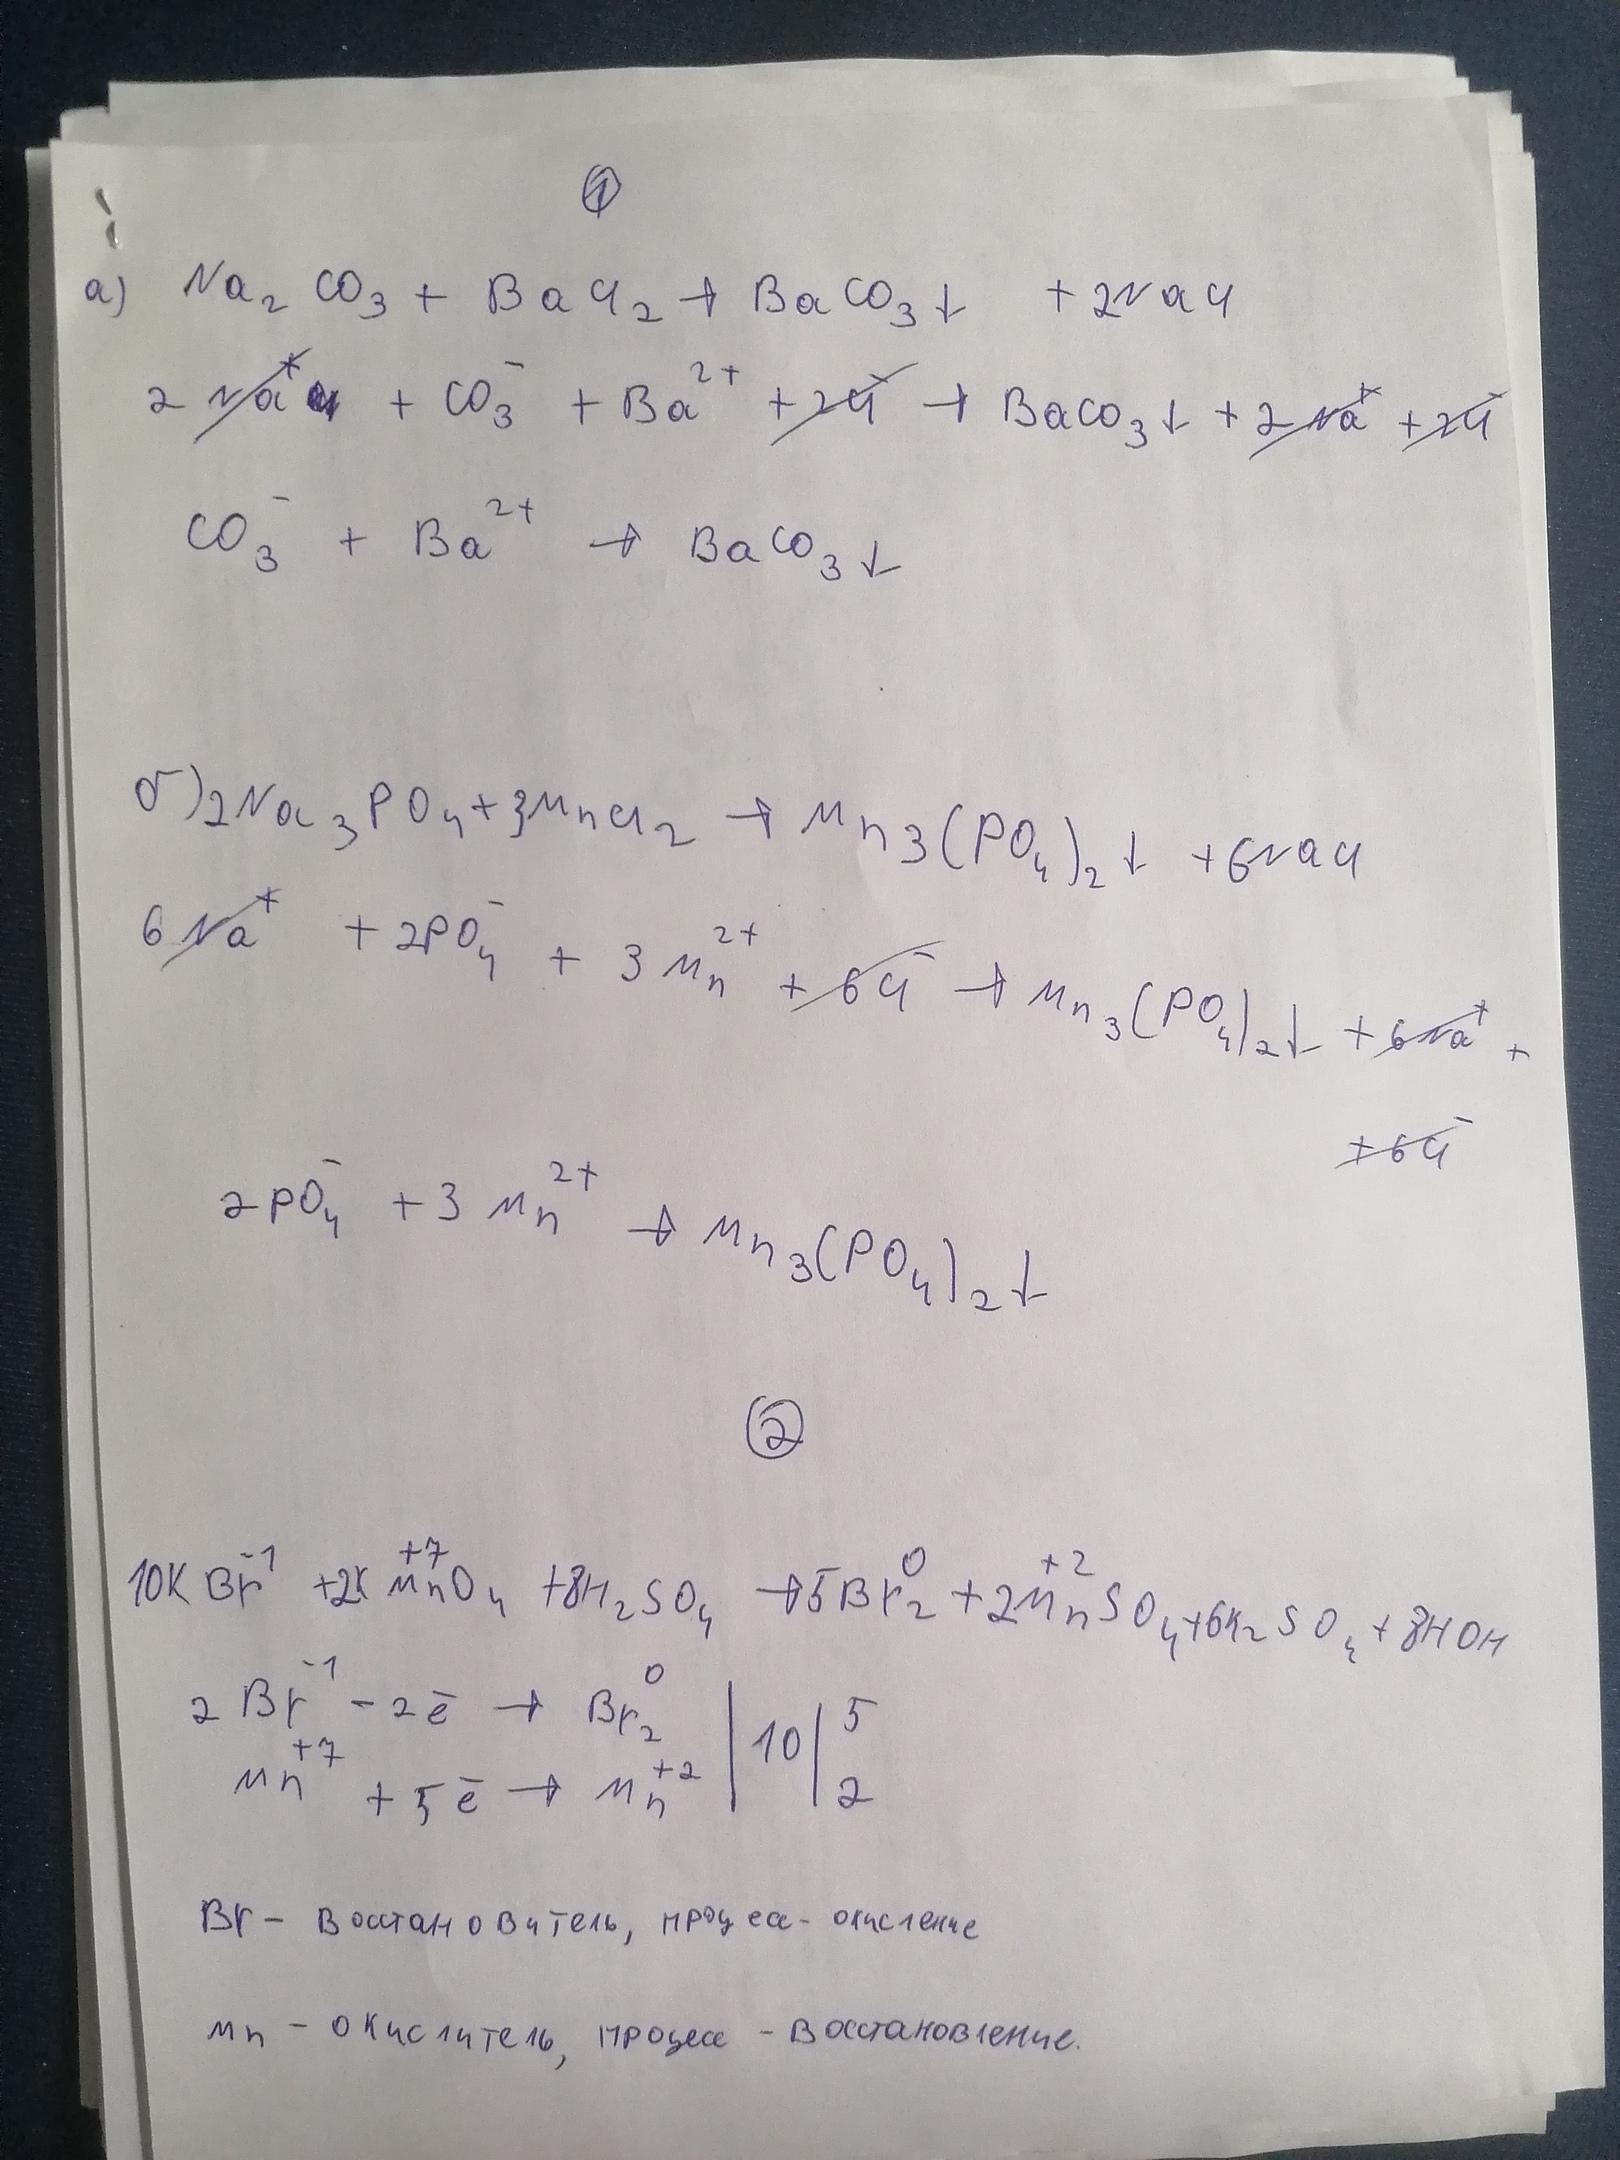 1
а) Na₂CO₃ + BaCl₂ → BaCO₃↓ + 2NaCl
2Na⁺ + CO₃⁻ + Ba²⁺ + 2Cl⁻ → BaCO₃↓ + 2Na⁺ + 2Cl⁻
CO₃⁻ + Ba²⁺ → BaCO₃↓
б) 2Na₃PO₄ + 3MnCl₂ → Mn₃(PO₄)₂↓ + 6NaCl
6Na⁺ + 2PO₄⁻ + 3Mn²⁺ + 6Cl⁻ → Mn₃(PO₄)₂↓ + 6Na⁺ +
+ 6Cl⁻
2PO₄⁻ + 3Mn²⁺ → Mn₃(PO₄)₂↓
2
10KBr⁻¹ + 2KMn⁺⁷O₄ + 8H₂SO₄ → 5Br₂⁰ + 2Mn⁺²SO₄ + 6K₂SO₄ + 8HOH
2Br⁻¹ - 2ē → Br₂⁰ | 10 | 5
Mn⁺⁷ + 5ē → Mn⁺² | | 2
Br - восстановитель, процесс - окисление
Mn - окислитель, процесс - восстановление.